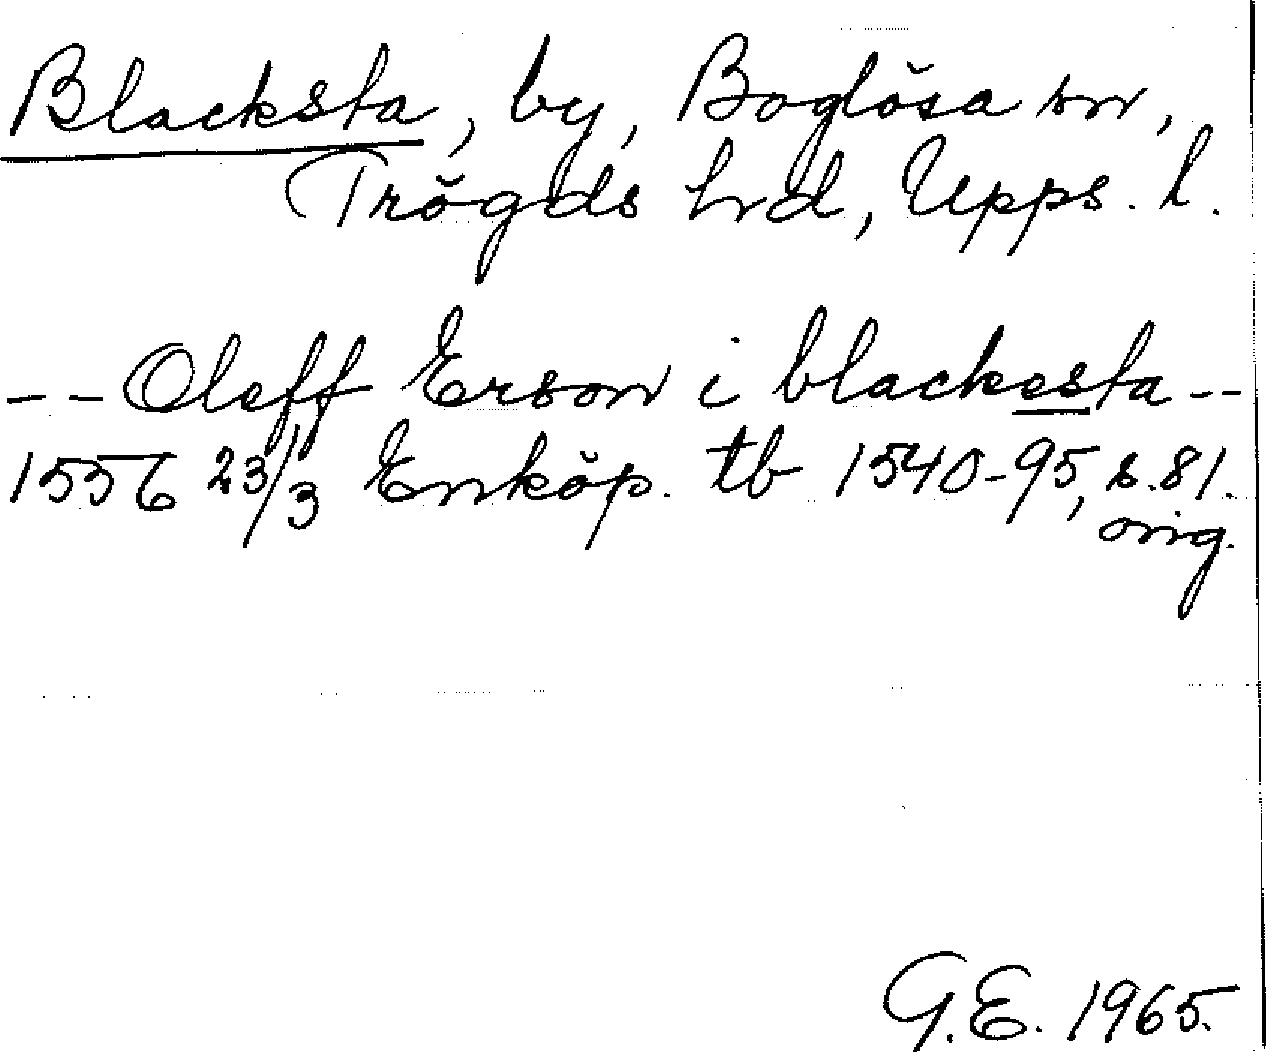 Blacksta, by, Boglösa sn,
Trögds hrd, Upps. l.
-- Oleff Erson i blackesta --
1556 23/3 Enköp. tb 1540-95, s. 81.
orig.
G.E. 1965.